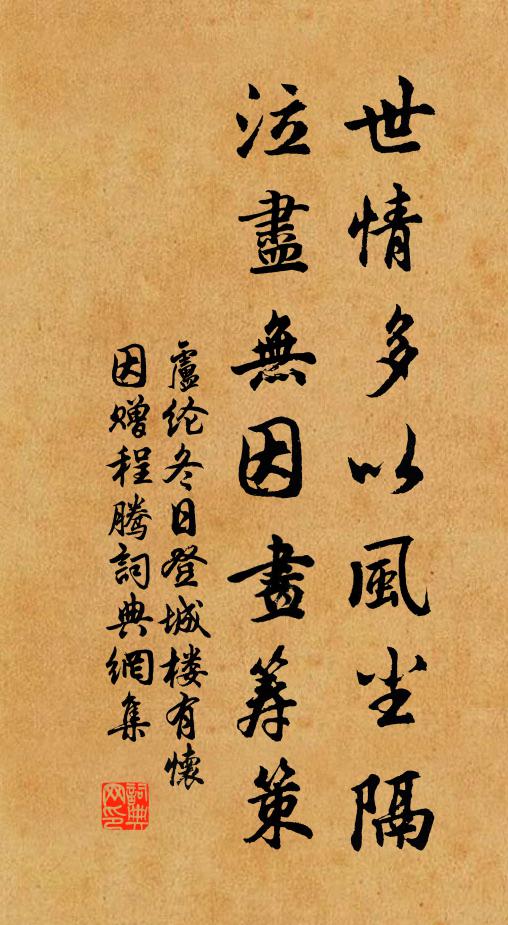 世情多以風尘隔
泣盡無因畫筹策
盧纶冬日登城楼有懷
因赠程腾詞典網集
詞典
网印